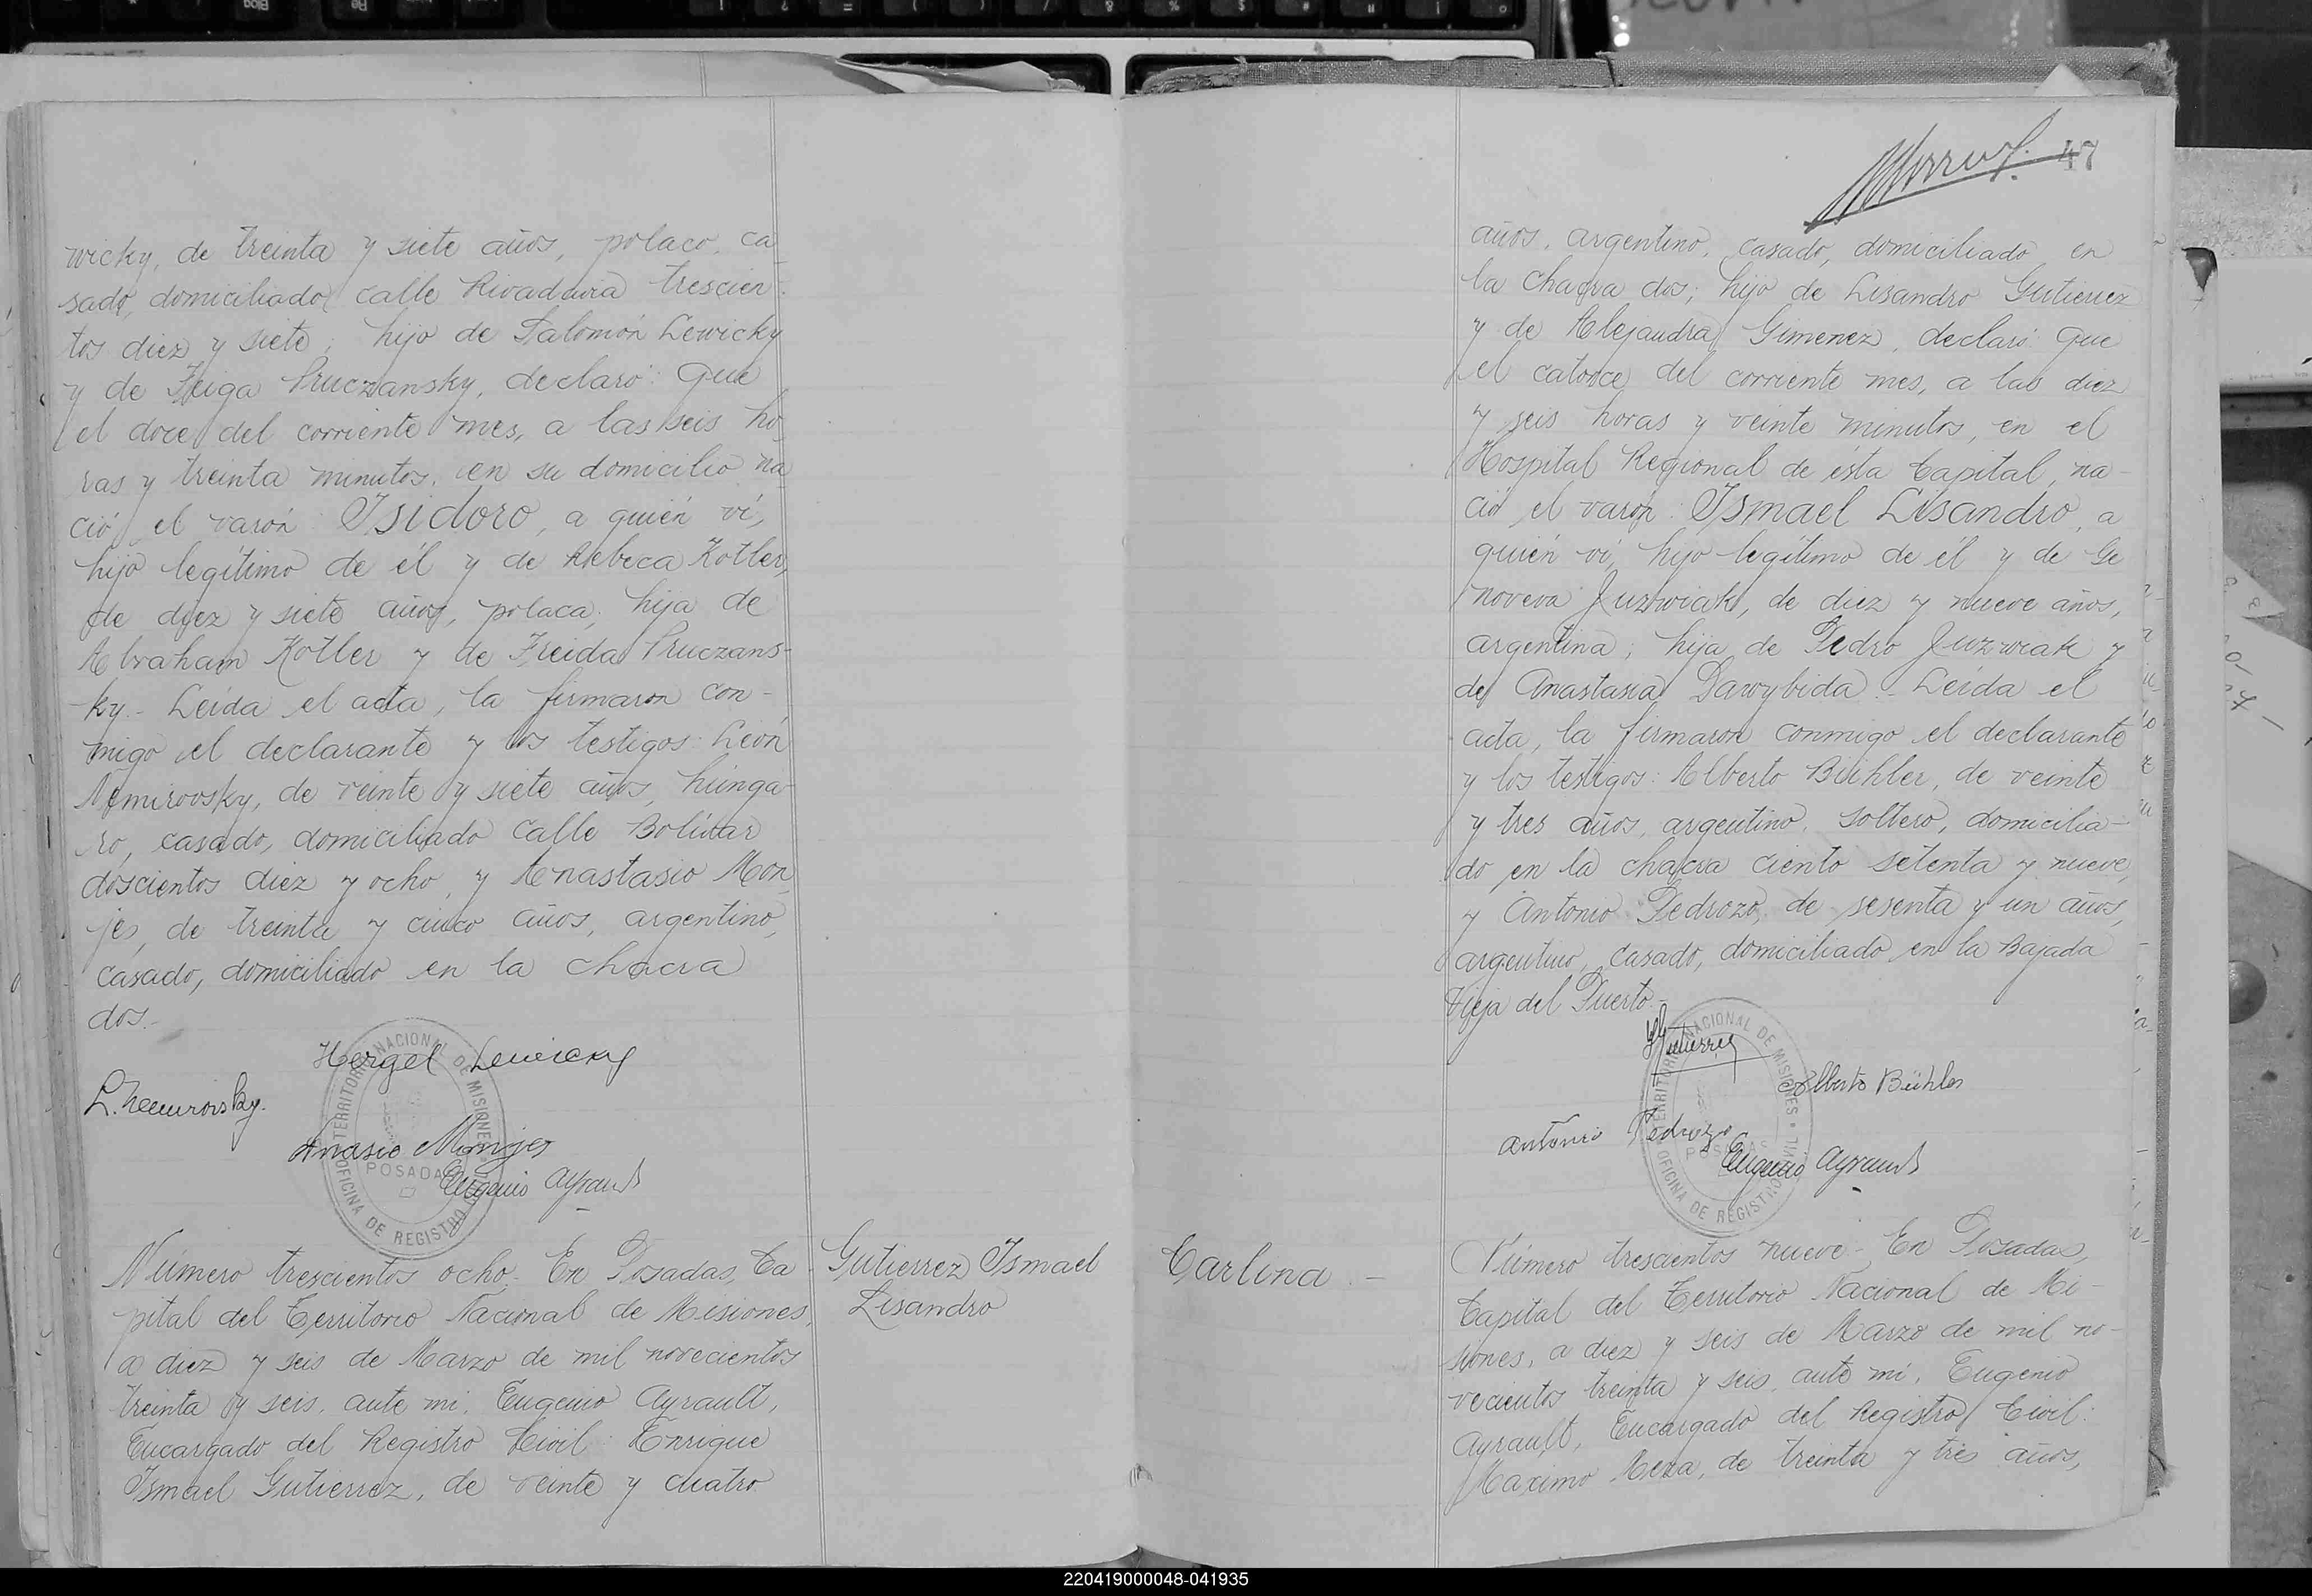 wicky, de treinta y siete años, polaco, ca-
sado, domiciliado calle Rivadavia trescien-
tos diez y siete; hijo de Salomón Lewicky
y de Feiga Pruczansky, declaró: Que
el doce del corriente mes, a las seis ho-
ras y treinta minutos, en su domicilio na
ció el varón: Isidoro, a quién ví,
hijo legítimo de él y de Rebeca Kotler,
de diez y siete años, polaca; hija de
Abraham Kotler y de Freida Pruczans-
ky.- Leída el acta, la firmaron con-
migo el declarante y los testigos: León
Nemirovsky, de veinte y siete años, húnga-
ro, casado, domiciliado calle Bolívar
doscientos diez y ocho, y Anastasio Mon-
jes, de treinta y cinco años, argentino,
casado, domiciliado en la chacra
dos.-
Hergel Lewicky
L. Nemirovsky.
Anasio Monjes
Eugenio Ayrault
TERRITORIO NACIONAL DE MISIONES
POSADAS
OFICINA DE REGISTRO CIVIL
Número trescientos ocho.- En Posadas, Ca-
pital del Territorio Nacional de Misiones,
a diez y seis de Marzo de mil novecientos
treinta y seis, ante mi, Eugenio Ayrault,
Encargado del Registro Civil: Enrique
Ismael Gutierrez, de veinte y cuatro
Gutierrez Ismael
Lisandro
47
años, argentino, casado, domiciliado en
la chacra dos; hijo de Lisandro Gutierrez
y de Alejandra Gimenez, declaró: Que
el catorce del corriente mes, a las diez
y seis horas y veinte minutos, en el
Hospital Regional de ésta Capital, na-
ció el varón: Ismael Lisandro, a
quién ví, hijo legítimo de él y de Ge
noveva Juzwiak, de diez y nueve años,
argentina; hija de Pedro Juzwiak y
de Anastasia Dawybida.- Leída el
acta, la firmaron conmigo el declarante
y los testigos: Alberto Bühler, de veinte
y tres años, argentino, soltero, domicilia-
do en la chacra ciento setenta y nueve,
y Antonio Pedrozo, de sesenta y un años,
argentino, casado, domiciliado en la Bajada
Vieja del Puerto.-
Gutierrez
Alberto Bühler
Antonio Pedrozo
Eugenio Ayrault
TERRITORIO NACIONAL DE MISIONES
POSADAS
OFICINA DE REGISTRO CIVIL
Carlina.-
Número trescientos nueve.- En Posadas,
Capital del Territorio Nacional de Mi-
siones, a diez y seis de Marzo de mil no-
vecientos treinta y seis, ante mi, Eugenio
Ayrault, Encargado del Registro Civil:
Maximo Meza, de treinta y tres años,
220419000048-041935